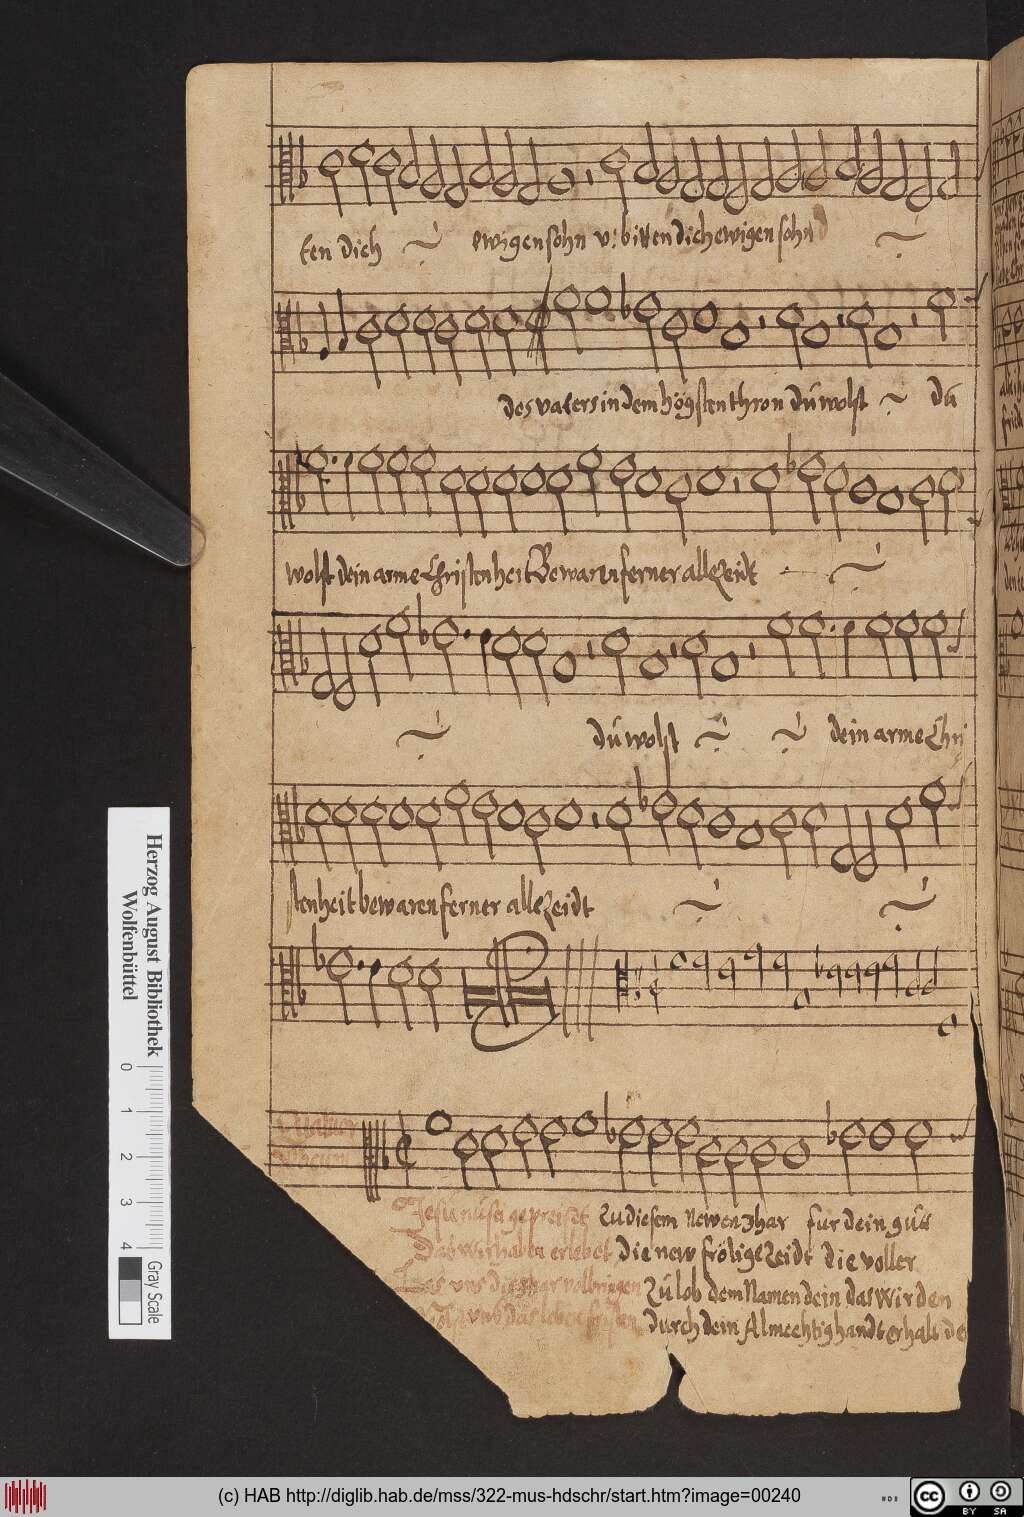 ten dich ewigen sohn v: bitten dich ewigen sohn
des vaters in dem högsten thron dú wolst dú
wolst dein arme Christenheit Bewaren ferner alle Zeidt
dú wolst dein arme Chri
stenheit bewaren ferner alle Zeidt
Jesú núsa gepreiszt zu diesem Newen Jhar für dein gútt
Das wir haben erlebet die new frölige Zeidt die voller
Las vns dis Jhar volbringen Zú lob dem Namen dein das wir den
vns das leben durch dein Almechtig handt erhalt de
Herzog August Bibliothek
Wolfenbüttel
0 1 2 3 4
Gray Scale
(c) HAB http://diglib.hab.de/mss/322-mus-hdschr/start.htm?image=00240
cc BY SA